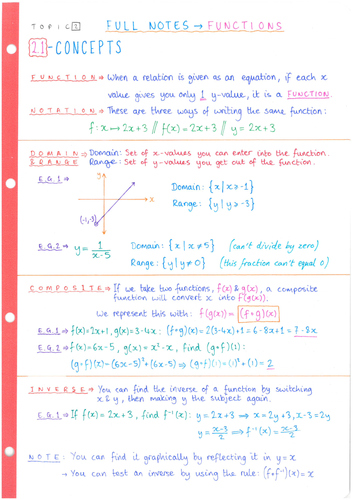 TOPIC 2 FULL NOTES → FUNCTIONS
2.1 - CONCEPTS
FUNCTION ⇒ When a relation is given as an equation, if each x
value gives you only 1 y-value, it is a FUNCTION.
NOTATION ⇒ These are three ways of writing the same function:
f: x ↦ 2x+3 // f(x) = 2x+3 // y = 2x+3
DOMAIN ⇒ Domain: Set of x-values you can enter into the function.
& RANGE Range: Set of y-values you get out of the function.
E.G.1 ⇒
y
x
(-1,-3)
Domain: {x | x ≥ -1}
Range: {y | y ≥ -3}
E.G.2 ⇒ y = 1/(x-5) Domain: {x | x ≠ 5} (can't divide by zero)
Range: {y | y ≠ 0} (this fraction can't equal 0)
COMPOSITE ⇒ If we take two functions, f(x) & g(x), a composite
function will convert x into f(g(x)).
We represent this with: f(g(x)) = (f∘g)(x)
E.G.1 ⇒ f(x)=2x+1, g(x)=3-4x: (f∘g)(x) = 2(3-4x)+1 = 6-8x+1 = 7-8x
E.G.2 ⇒ f(x)=6x-5, g(x)=x²-x, find (g∘f)(1):
(g∘f)(x) = (6x-5)²+(6x-5) ⇒ (g∘f)(1) = (1)²+(1) = 2
INVERSE ⇒ You can find the inverse of a function by switching
x & y, then making y the subject again.
E.G.1 ⇒ If f(x) = 2x+3, find f⁻¹(x): y = 2x+3 ⇒ x = 2y+3, x-3 = 2y
y = (x-3)/2 ⇒ f⁻¹(x) = (x-3)/2
NOTE: You can find it graphically by reflecting it in y=x
→ You can test an inverse by using the rule: (f∘f⁻¹)(x) = x